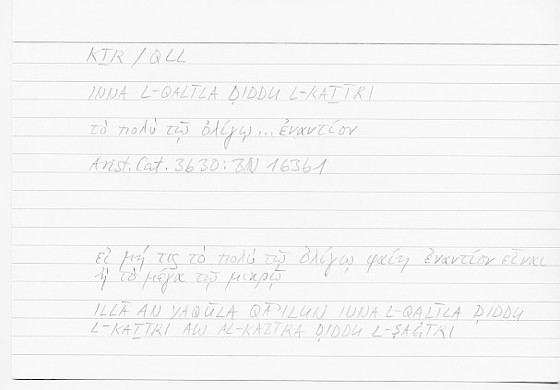 KṮR / QLL
INNA L-QALĪLA ḌIDDU L-KAṮĪRI
τὸ πολὺ τῷ ὀλίγῳ ... ἐναντίον
Arist. Cat. 3b30 : BN 163b1
εἰ μή τις τὸ πολὺ τῷ ὀλίγῳ φαίη ἐναντίον εἶναι
ἢ τὸ μέγα τῷ μικρῷ
ILLĀ AN YAQŪLA QĀʾILUN INNA L-QALĪLA ḌIDDU
L-KAṮĪRI AW AL-KABĪRA ḌIDDU L-ṢAĠĪRI